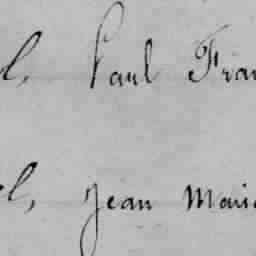 l, Paul Fran
l, Jean Marie